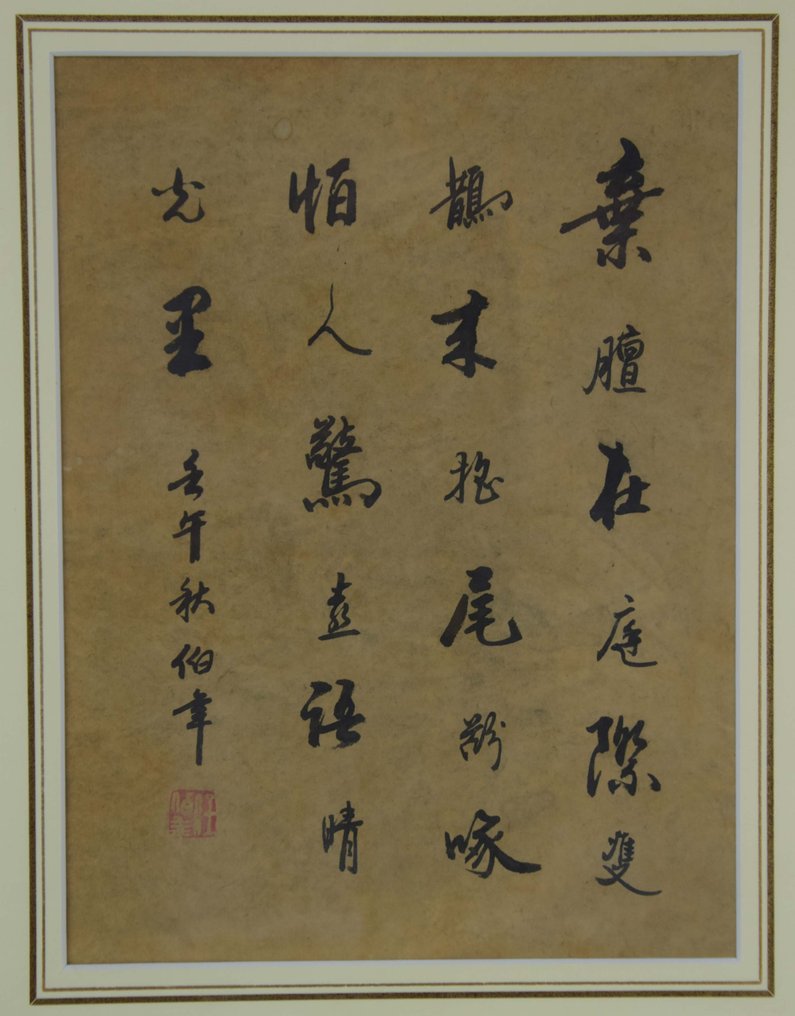 棄膻在庭際雙
鵲來摇尾啄
怕人驚喜語晴
光里
壬午秋伯年